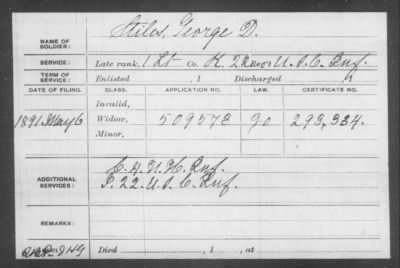 NAME OF SOLDIER: Stiles, George D.
SERVICE: Late rank, 1 Lt Co. K, 22 Reg't U.S.C. Inf.
TERM OF SERVICE: Enlisted , 1 Discharged , 1
DATE OF FILING. CLASS. APPLICATION NO. LAW. CERTIFICATE NO.
Invalid,
1891 May 6 Widow, 509573 90 293,334.
Minor,
ADDITIONAL SERVICES: C. H. Inf.
22 U.S.C. Inf.
REMARKS:
Died , 1 , at